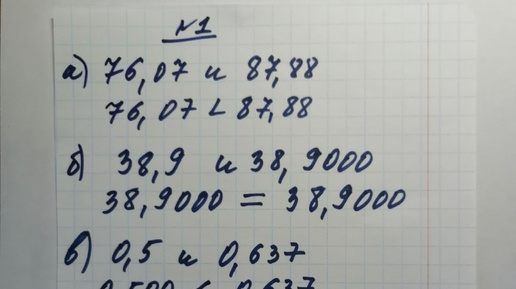 №1
а) 76,07 и 87,88
76,07 < 87,88
б) 38,9 и 38,9000
38,9000 = 38,9000
в) 0,5 и 0,637
0,500 < 0,637